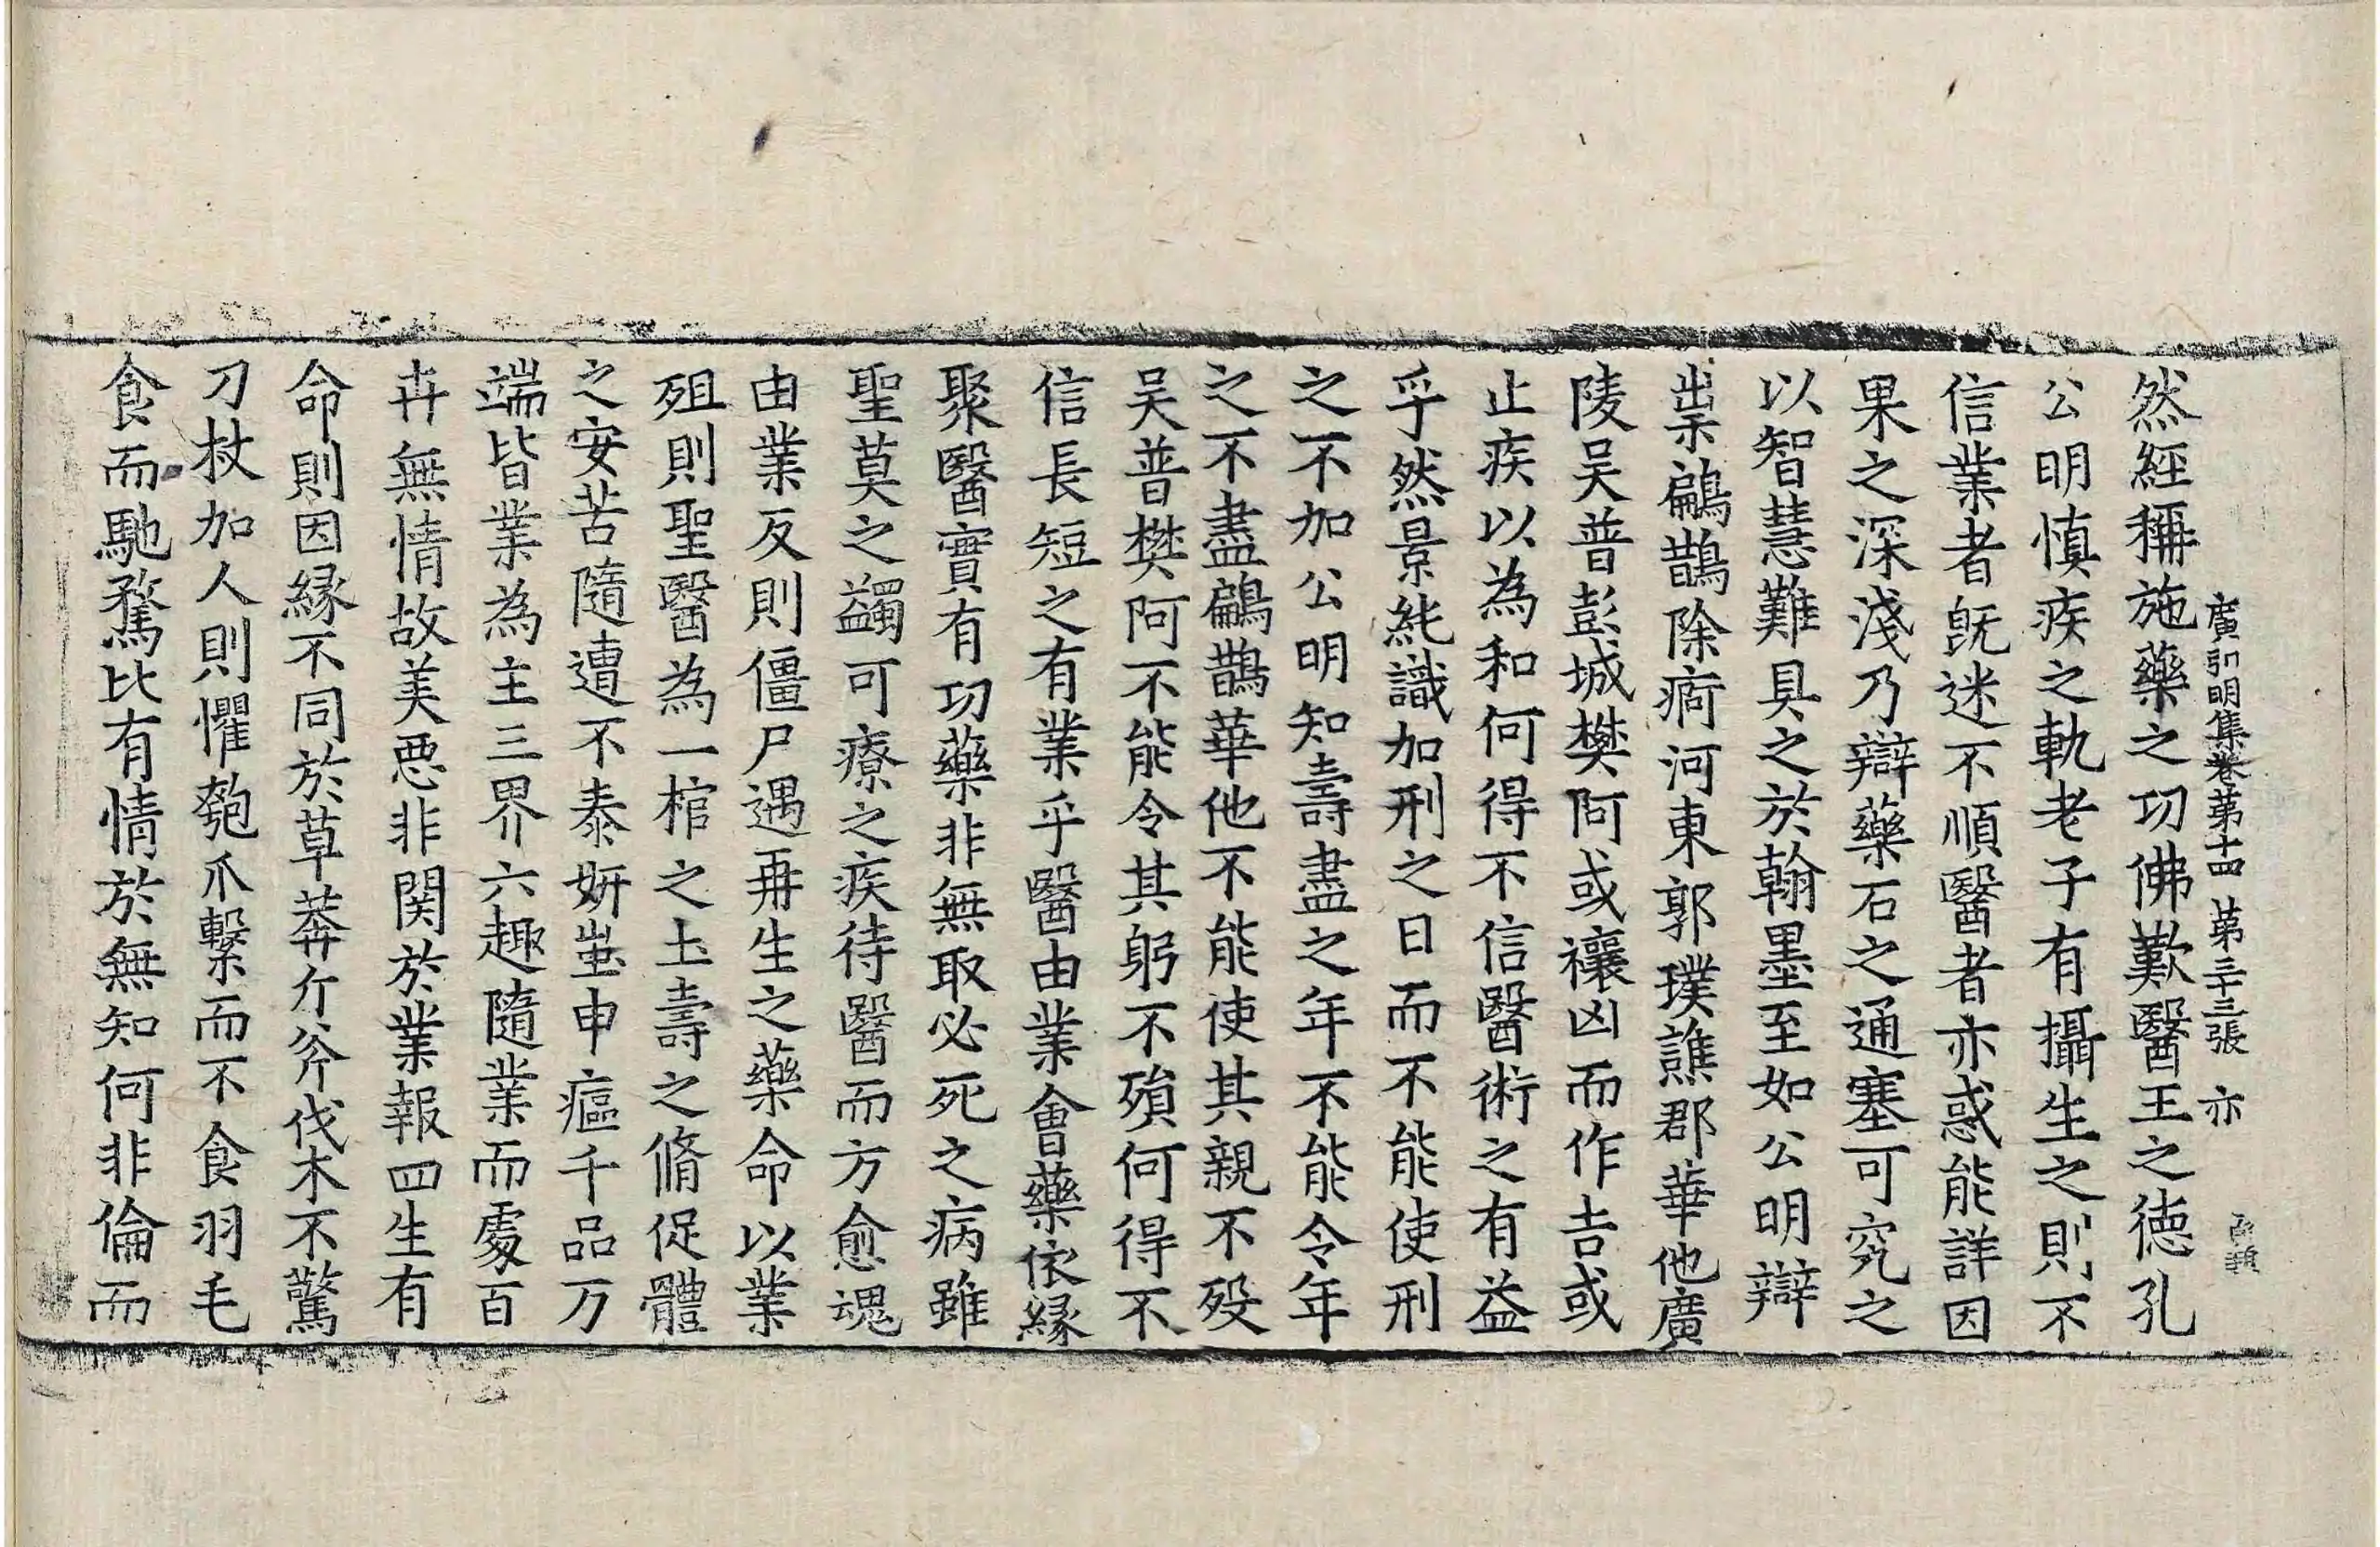 然經稱施藥之功佛歎醫王之德孔
廣弘明集卷第十四 第三十三張 亦
公明慎疾之軌老子有攝生之則不
信業者旣迷不順醫者亦惑能詳因
果之深淺乃辯藥石之通塞可究之
以智慧難具之於翰墨至如公明辯
祟鶣鵲除痾河東郭璞譙郡華他廣
陵吴普彭城樊阿或禳凶而作吉或
止疾以為和何得不信醫術之有益
乎然景純識加刑之日而不能使刑
之不加公明知壽盡之年不能令年
之不盡鶣鵲華他不能使其親不殁
吴普樊阿不能令其躬不殞何得不
信長短之有業乎醫由業會藥依縁
聚醫實有功藥非無取必死之病雖
聖莫之蠲可療之疾待醫而方愈魂
由業反則僵尸遇再生之藥命以業
殂則聖醫為一棺之土壽之脩促體
之安苦隨遭不泰妍蚩申瘟千品万
端皆業為主三界六趣隨業而處百
卉無情故美惡非関於業報四生有
命則因縁不同於草莽斤斧伐木不驚
刀杖加人則懼匏爪繫而不食羽毛
食而馳騖比有情於無知何非倫而